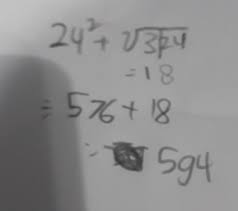 24² + √324
= 18
= 576 + 18
= 594